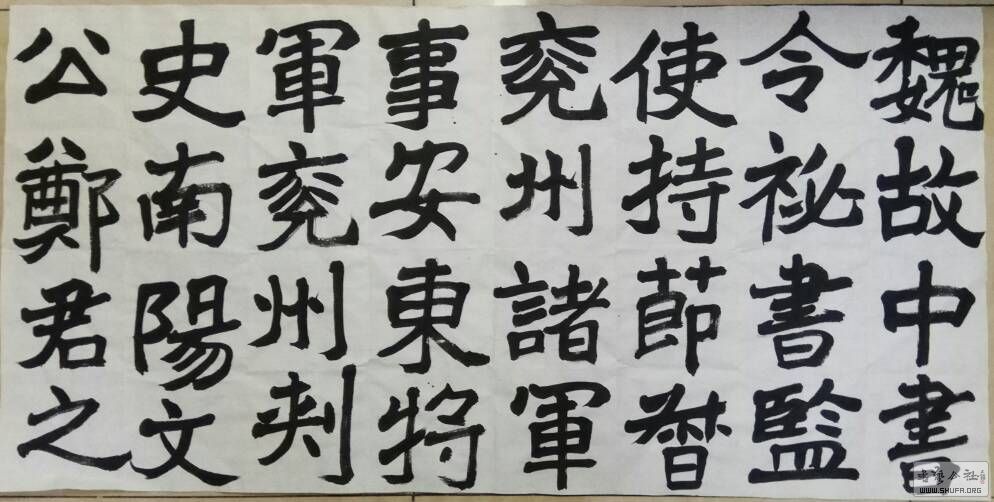 魏故中書
令祕書監
使持節督
兖州諸軍
事安東將
軍兖州刾
史南陽文
公鄭君之
书艺公社
WWW.SHUFA.ORG